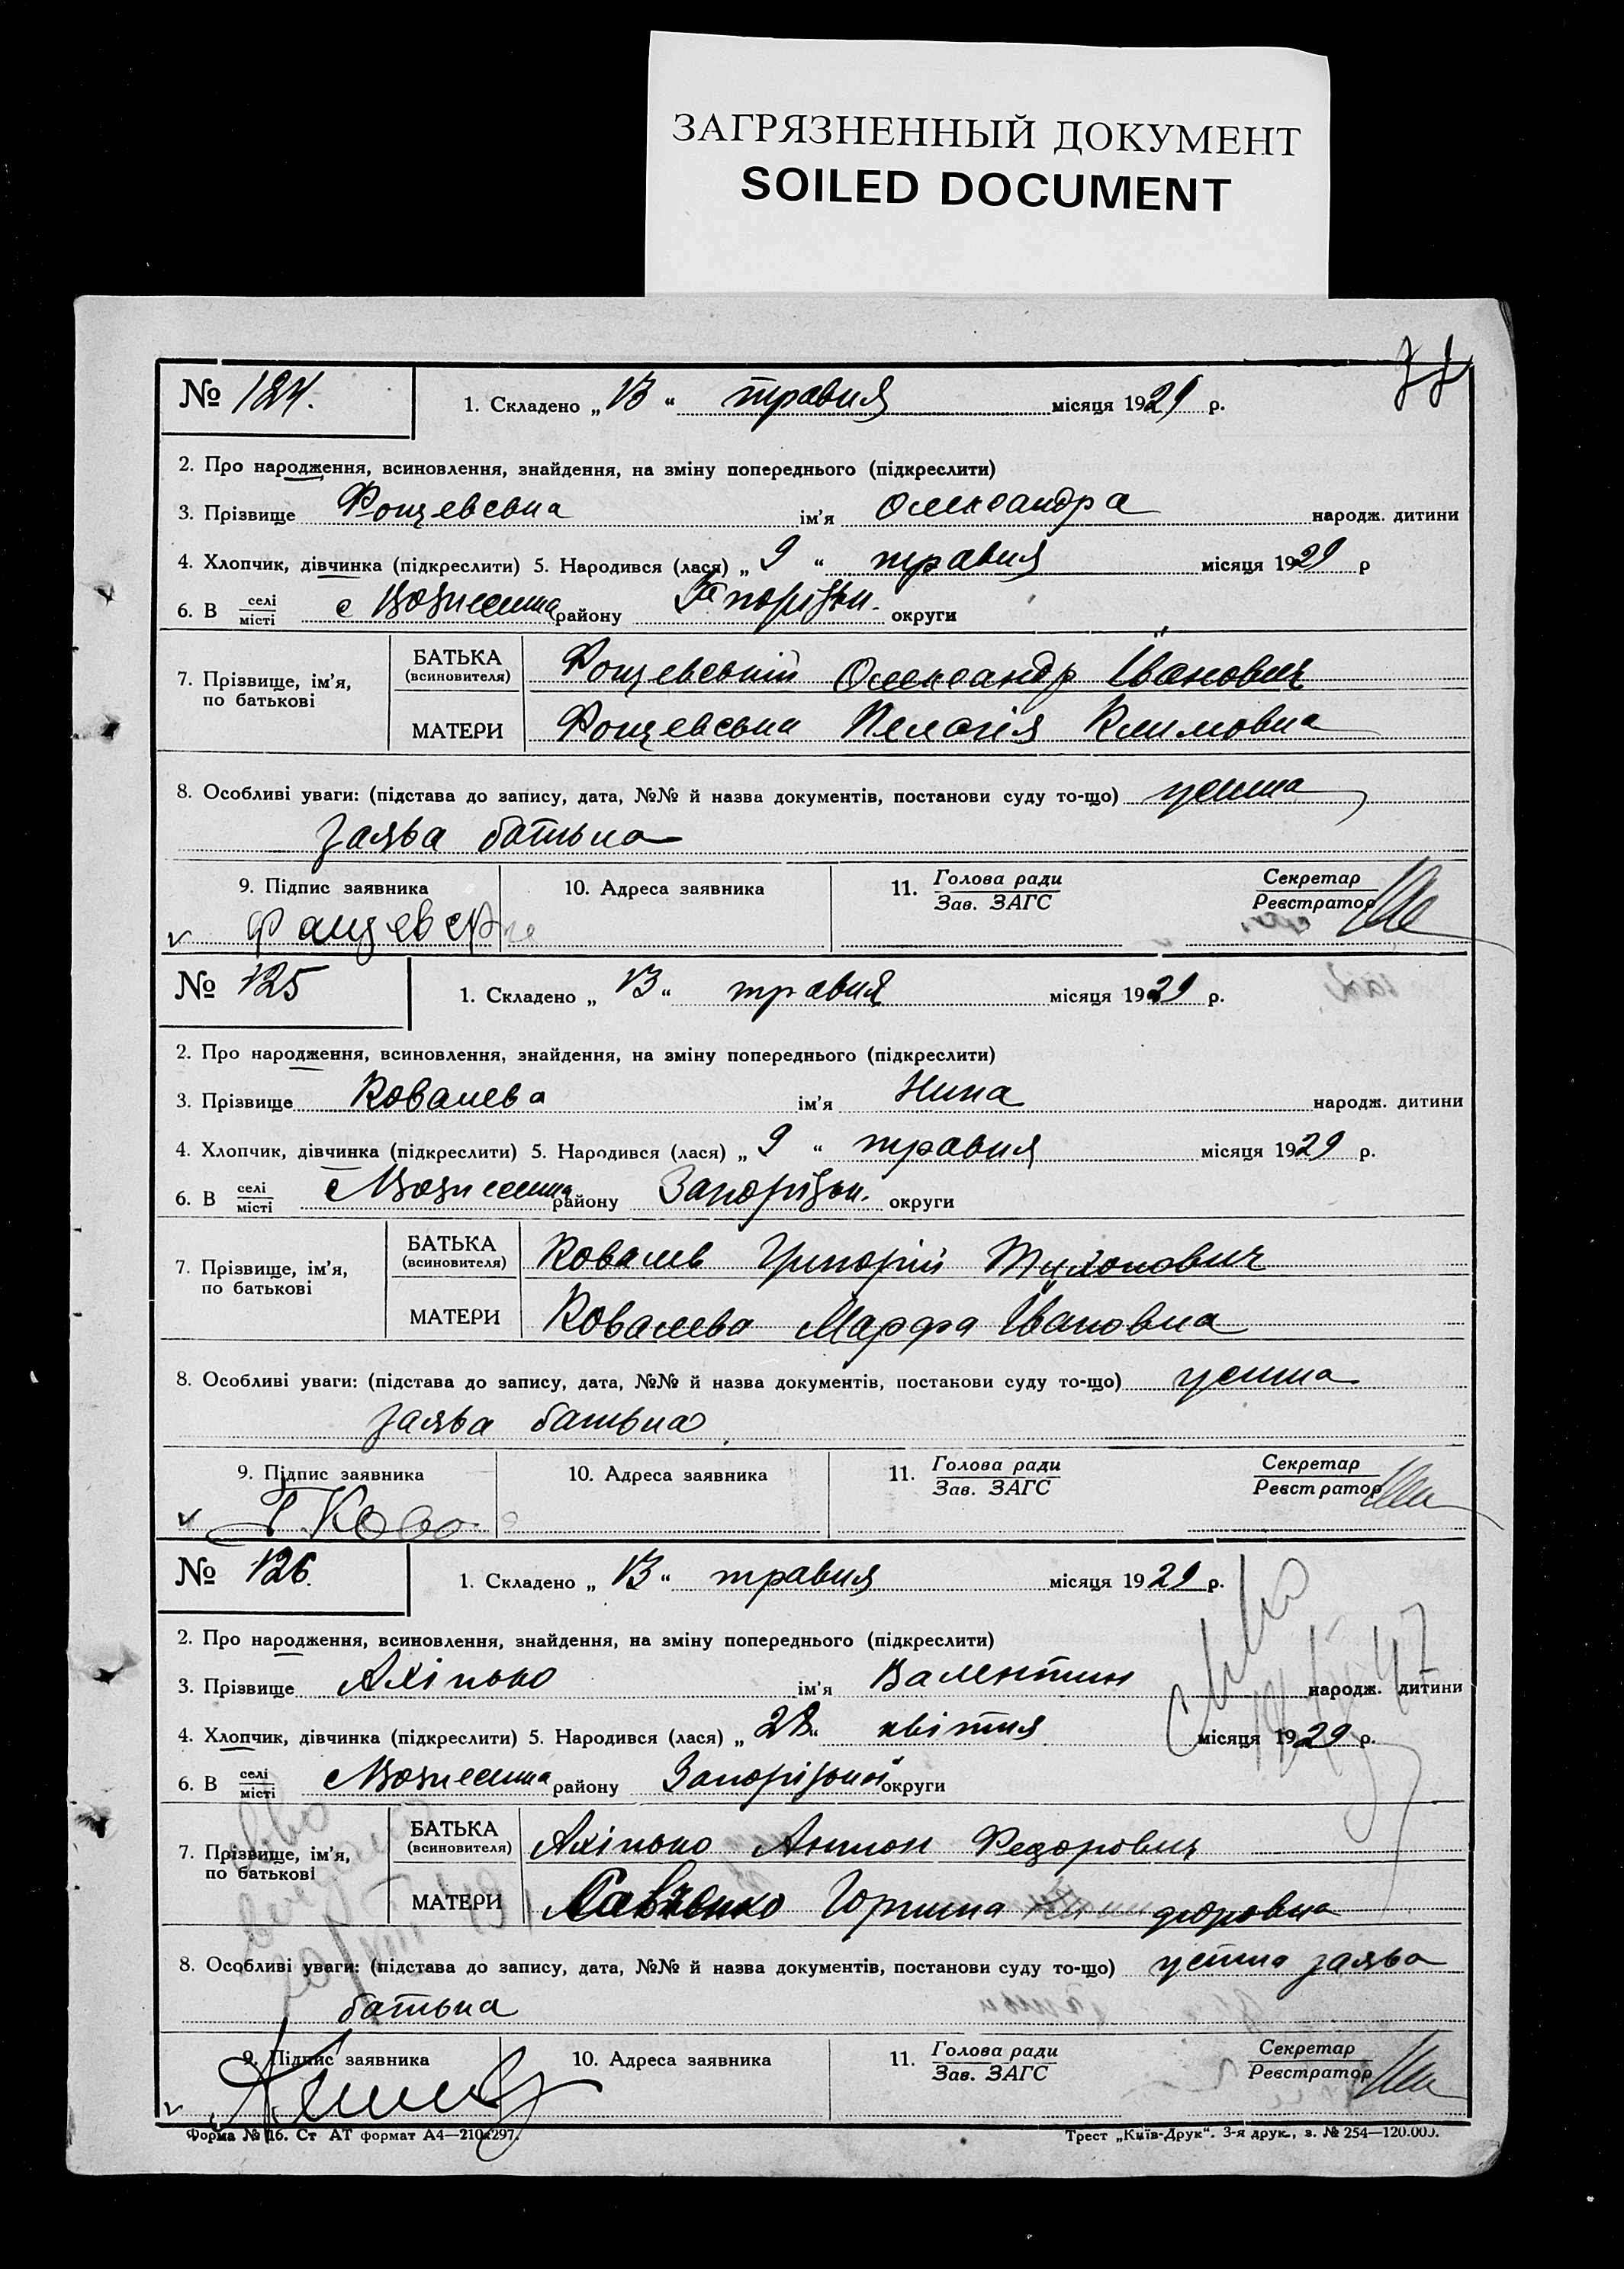 ЗАГРЯЗНЕННЫЙ ДОКУМЕНТ
SOILED DOCUMENT
№ 124. 1. Складено „ 13 “ травня місяця 1929 р.
2. Про народження, всиновлення, знайдення, на зміну попереднього (підкреслити)
3. Прізвище Фощевська ім’я Олександра народж. дитини
4. Хлопчик, дівчинка (підкреслити) 5. Народився (лася) „ 9 “ травня місяця 1929 р
6. В селі місті с Вознесенка району Запорізьк. округи
7. Прізвище, ім’я, по батькові БАТЬКА (всиновителя) Фощевський Олександр Іванович
МАТЕРИ Фощевська Пелагія Климовна
8. Особливі уваги: (підстава до запису, дата, №№ й назва документів, постанови суду то-що) устна
заява батька
9. Підпис заявника 10. Адреса заявника 11. Голова ради Зав. ЗАГС Секретар Реєстратор
№ 125 1. Складено „ 13 “ травня місяця 1929 р.
2. Про народження, всиновлення, знайдення, на зміну попереднього (підкреслити)
3. Прізвище Ковалева ім’я Нина народж. дитини
4. Хлопчик, дівчинка (підкреслити) 5. Народився (лася) „ 9 “ травня місяця 1929 р.
6. В селі місті с Вознесенка району Запорізьк. округи
7. Прізвище, ім’я, по батькові БАТЬКА (всиновителя) Ковалев Григорій Тихонович
МАТЕРИ Ковалева Марфа Івановна
8. Особливі уваги: (підстава до запису, дата, №№ й назва документів, постанови суду то-що) устна
заява батька
9. Підпис заявника 10. Адреса заявника 11. Голова ради Зав. ЗАГС Секретар Реєстратор
Г Кова
№ 126. 1. Складено „ 13 “ травня місяця 1929 р.
2. Про народження, всиновлення, знайдення, на зміну попереднього (підкреслити)
3. Прізвище Ахінько ім’я Валентин народж. дитини
4. Хлопчик, дівчинка (підкреслити) 5. Народився (лася) „ 28 “ квітня місяця 1929 р.
6. В селі місті с Вознесенка району Запорізької округи
7. Прізвище, ім’я, по батькові БАТЬКА (всиновителя) Ахінько Антон Федорович
МАТЕРИ Савченко Горпина
8. Особливі уваги: (підстава до запису, дата, №№ й назва документів, постанови суду то-що) устна заява
батька
9. Підпис заявника 10. Адреса заявника 11. Голова ради Зав. ЗАГС Секретар Реєстратор
Форма № 16. Ст АТ формат А4—210х297. Трест „Київ-Друк“. 3-я друк., з. № 254—120.000.